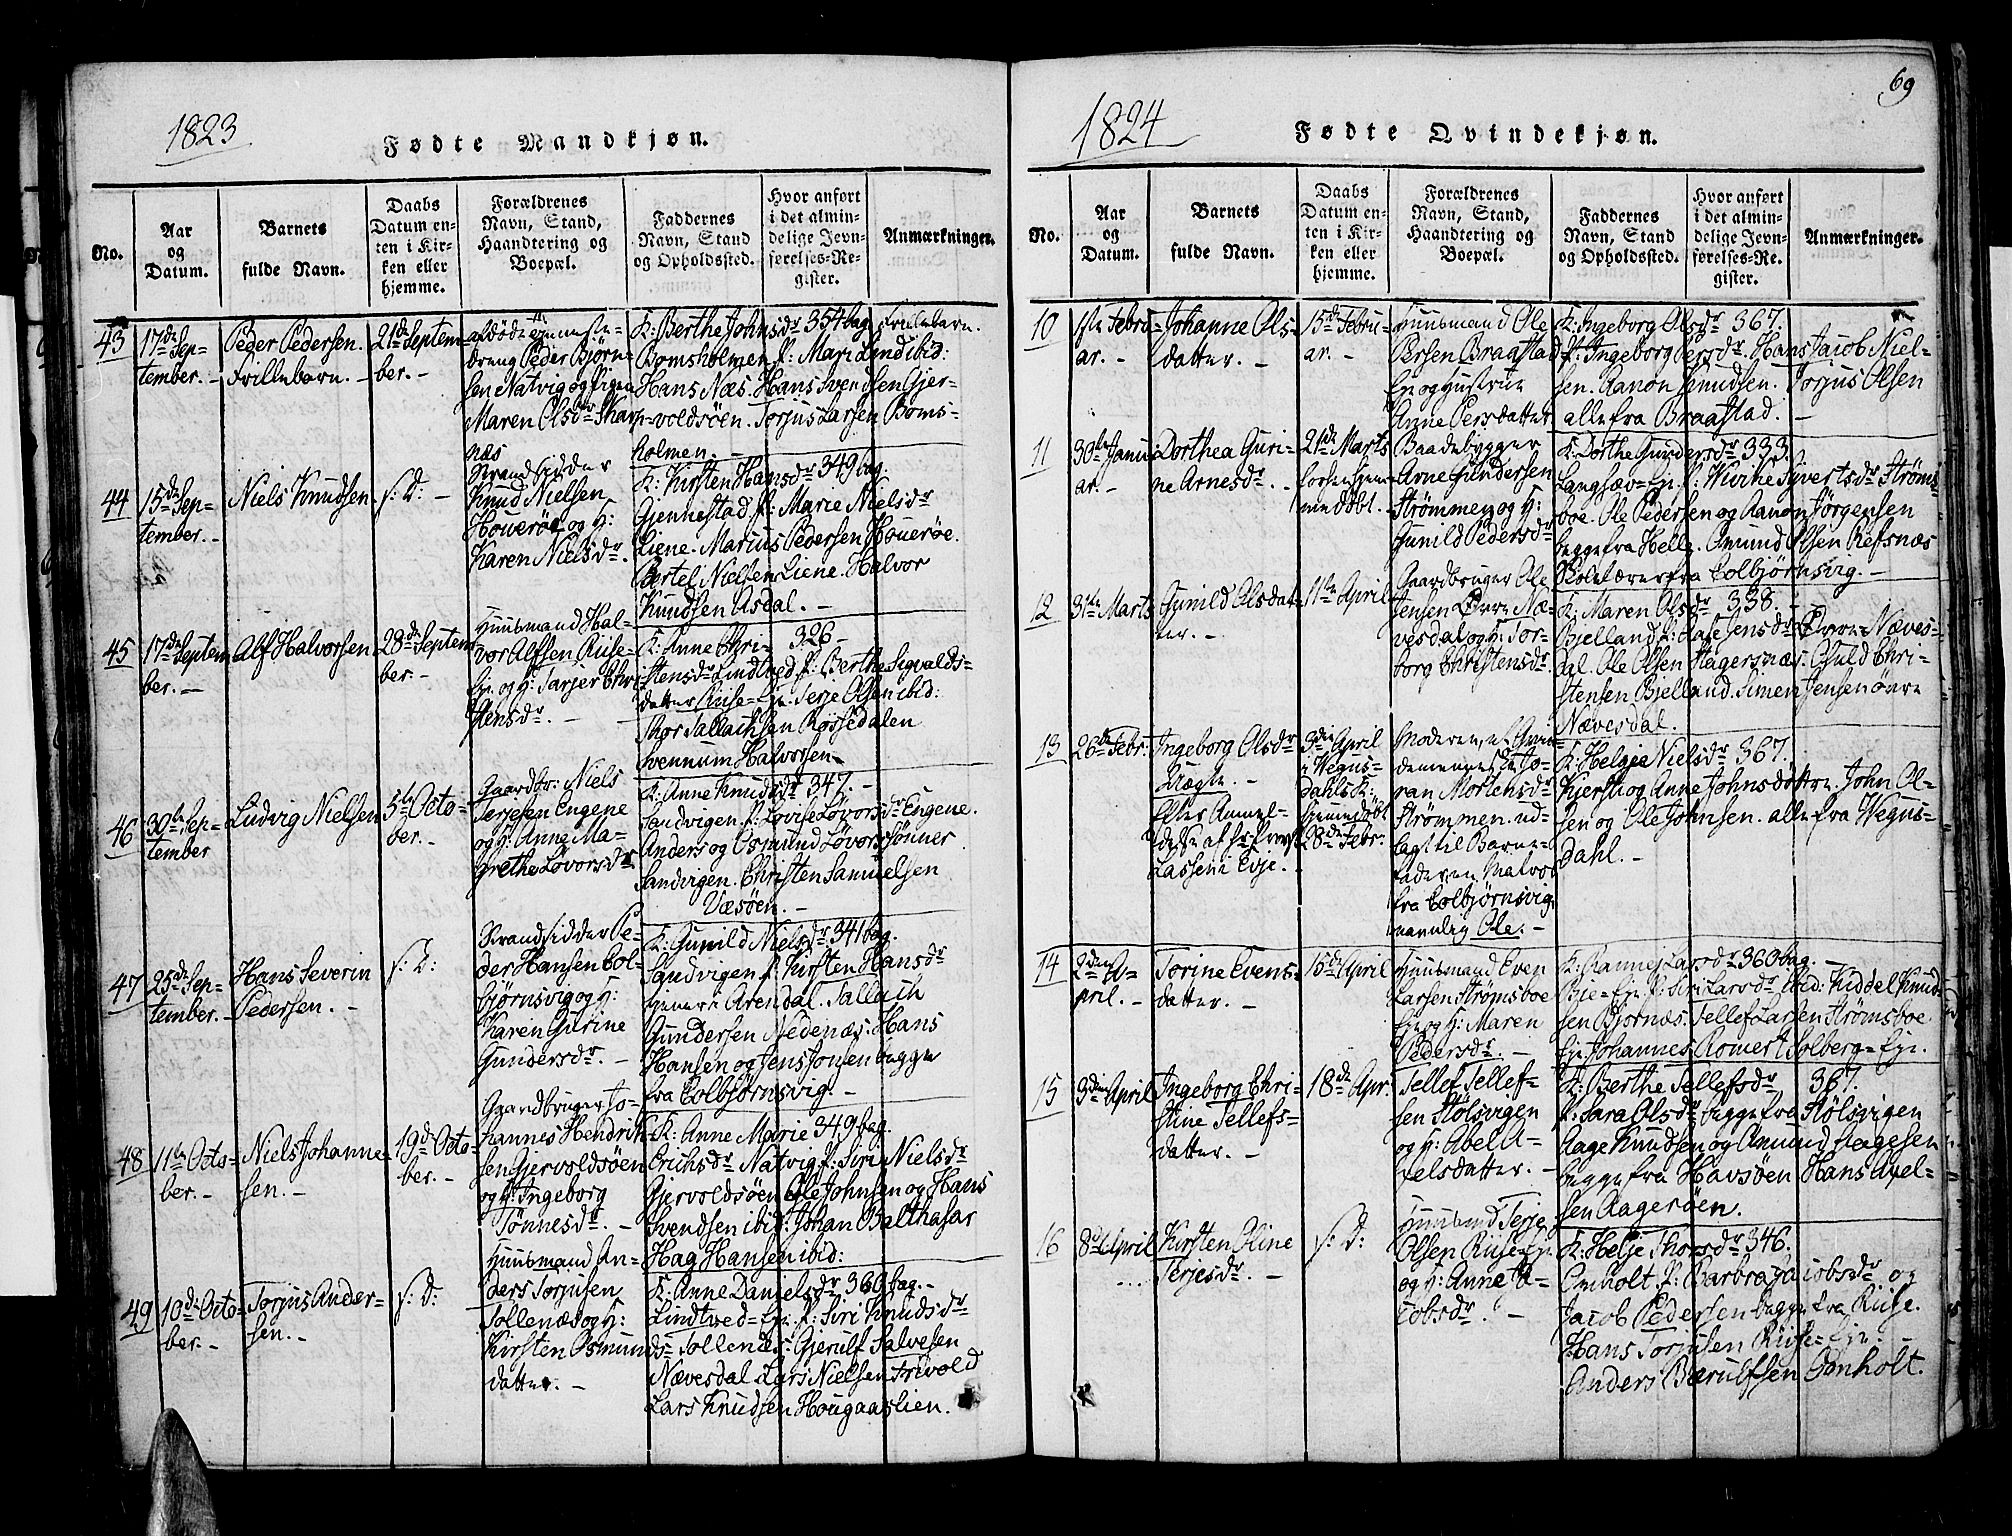 1823
Fødte Mandkjøn.
No.
Aar
og
Datum.
Barnets
fulde Navn.
Daabs
Datum en-
ten i Kir-
ken eller
hjemme.
Forældrenes
Navn, Stand,
Haandtering og
Boepæl.
Faddernes
Navn, Stand
og Opholdssted.
Hvor anført
i det almin-
delige Jevn-
førelses-Re-
gister.
Anmærkninger.
43
17de Sep-
tember. -
Peder Pedersen.
Frillebarn. -
21de Septem-
ber. -
afdøde
dreng Peder Bjørn-
sen Natvig og Pigen
Maren Olsdr Skarp-
næs
K: Berthe Johnsdr 354 bag.
Bomsholmen f: Mari Lind ibid:
Hans Næs. Hans Svendsen Gjer-
voldsöen. Torjus Larsen Boms-
holmen. -
Frillebarn.
44
15de Sep-
tember. -
Niels Knudsen
s: D: -
Strandsidder
Knud Nielsen
Houerøe og H:
Karen Nielsdr.
K: Kirsten Hansdr 349 bag.
Gjennestad f: Marie Nielsdr
Liene. Marius Pedersen Houerøe.
Bertel Nielsen Liene. Halvor
Knudsen Asdal. -
45
17de Septem-
ber. -
Alf Halvorsen
28de Septem-
ber. -
Huusmand Hal-
vor Alfsen Riise-
Eje og H: Tarjer Chri-
stensdr. -
K: Anne Chri- 326 -
stensdr Lindtved f: Berthe Sigvalds-
datter Riise-Eje. Terje Olsen ibid:
Thor Tallachsen Røssedalen
Svennum Halvorsen -
46
30te Sep-
tember
Ludvig Nielsen
5te Octo-
ber. -
Gaardbr: Niels
Terjesen Engene
og H: Anne Ma-
grethe Løvorsdr
K: Anne Knudsdr 347. -
Sandvigen f: Lovise Løvorsdr Engene.
Anders og Osmund Løvorssönner
Sandvigen. Christen Samuelsen
Væsöen. -
47
25de Sep-
tember. -
Hans Severin
Pedersen. -
s: D:
Strandsidder Pe-
der Hansen Col-
bjørnsvig og H:
Karen Gurine
Gundersdr. -
K: Gunild Nielsdr 341 bag.
Sandvigen f: Kirsten Hansdr
tjener i Arendal. Tallach
Gundersen Nedenæs. Hans
Hansen og Jens Jonsen begge
fra Colbjørnsvig. -
48
11te Octo-
ber. -
Niels Johanne-
sen. -
19de Octo-
ber. -
Gaardbruger Jo-
hannes Hendrik-
sen Gjervoldsöen
og H: Ingeborg
Tønnesdr. -
K: Anne Marie 349 bag.
Erichsdr Natvig f: Siri Nielsdr
Gjervoldsöen Ole Johnsen og Hans
Svendsen ibid: Johan Balthasar
Hag Hansen ibid:
49
10de Octo-
ber. -
Torjus Ander-
sen. -
s: D:
Huusmand An-
ders Torjusen
Sollenæs og H:
Kirsten Osmunds-
datter. -
K: Anne Danielsdr 360 bag. -
Lindtved - Eje. f: Siri Knudsdr
Sollenæs. Gjerulf Salvesen
Nævesdal Lars Nielsen Frivold
Lars Knudsen Hougaaslien. -
69
1824
Fødte Qvindekjøn.
No.
Aar
og
Datum.
Barnets
fulde Navn.
Daabs
Datum en-
ten i Kir-
ken eller
hjemme.
Forældrenes
Navn, Stand,
Haandtering og
Boepæl.
Faddernes
Navn, Stand
og Opholdssted.
Hvor anført
i det almin-
delige Jevn-
førelses-Re-
gister.
Anmærkninger.
10
1ste Febru-
ar. -
Johanne Ols-
datter. -
15de Febru-
ar. -
Huusmand Ole
Persen Braastad
Eje og Hustrue
Anne Persdatter
K: Ingeborg Olsdr 367.
f: Ingeborg Persdr. Hans Jacob Niel-
sen. Aanon Knudsen. Torjus Olsen
alle fra Braastad. -
11
30te Janu-
ar. -
Dorthea Guri-
ne Arnesdr. -
21de Marts
forhen hjem-
me döbt.
Baadebygger
Arne Gundersen
Strømmen og H:
Gunild Pedersdr
K: Dorthe Gundersdr 333.
Langsæv - Eje. f: Wirke Syvertsdr Strøms-
boe. Ole Pedersen og Aanon Jörgensen
begge fra Helle. Omund Olsen Refsnæs
Skolelærer fra Colbjørnsvig. -
12
31te Marts
Gunild Olsdat-
ter. -
11te April
Gaardbruger Ole
Jensen Øvre Næ-
vesdal og H: Tor-
borg Christensdr.
K: Maren Olsdr 338. -
Bjelland f: Aase Jensdr Øvre Næves-
dal. Ole Olsen Hagersnæs. Osuld Chri-
stensen Bjelland. Simen Jensen øvre
Nævesdal.
13
26de Febr:
Ingeborg Olsdr
Uægte. -
efter Anmel-
delse af Hr Provst
Lassen i Evje. -
3die April
i Wegus-
dahls K:
hjemmedöbt
28de Febr:
Moderen, et Qvin-
demenneske Jo-
ran Mortensdr
Strømmen. ud-
lagt til Barne-
faderen Matros
fra Colbjørnsvig
navnlig Ole. -
K: Helgje Nielsdr 367.
Kjersti og Anne Johnsdøttre. John Ol-
sen og Ole Johnsen. alle fra Wegus-
dahl. -
14
2den A-
pril. -
Torine Evens-
datter. -
15de April
Huusmand Even
Larsen Strømsboe
Eje og H: Maren
Pedersdr. -
K: Rannej Larsdr 360 bag. -
Bje - Eje. f: Siri Larsdr ibid: Kiddel Knud-
sen Bjornæs. Tellef Larsen Strømsboe
Eje. Johannes Romert Solberg - Eje.
15
3die April
Ingeborg Chri-
stine Tellefs-
datter. -
18de Apr.
Tellef Tellef-
sen Stölsvigen
og H: Abel A-
xelsdatter. -
K: Berthe Tellefsdr 367.
f: Sara Olsdr begge fra Stölsvigen
Aage Knudsen og Amund Aagesen
begge fra Havsöen Hans Axel-
sen Aageröen.
16
8de April
Kirsten Oline
Terjesdr. -
s: D:
Huusmand Terje
Olsen Riise-Eje
og H: Anne Ja-
cobsdr. -
K: Helje Thorsdr 346.
Omholt f: Barbra Jacobsdr og
Jacob Pedersen begge fra Riise.
Hans Torjusen Riise-Eje. -
Anders Bærulfsen Omholt.